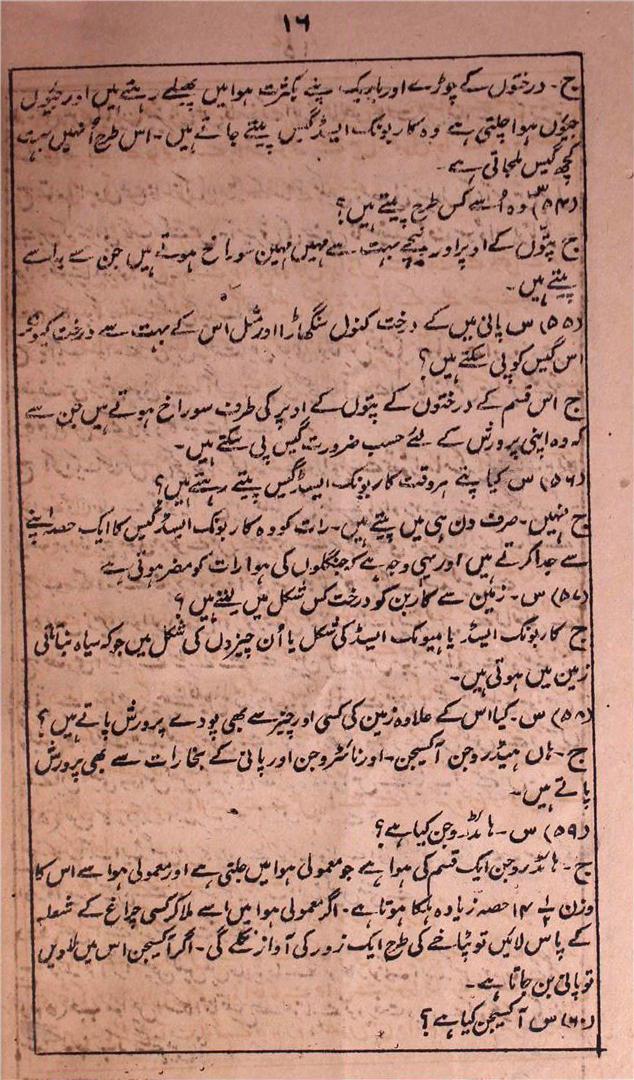 ۱۶
ج۔ درختوں کے چوڑے اور باریک پتے بکثرت ہوا میں پھیلے رہتے ہیں اور جیوں
جیوں ہوا چلتی ہے وہ کاربونک ایسڈ گیس پیتے جاتے ہیں۔ اس طرح اُنہیں بہت
کچھ گیس ملجاتی ہے۔
(۵۴) س وہ اُسے کس طرح پیتے ہیں؟
ج پتّوں کے اوپر اور نیچے بہت سے مہین مہین سوراخ ہوتے ہیں جن سے یہ اسے
پیتے ہیں۔
(۵۵) س پانی میں کے درخت کنول سنگھاڑا اور مثل اس کے بہت سے درخت کیونکر
اس گیس کو پی سکتے ہیں؟
ج اس قسم کے درختوں کے پتوں کے اوپر کی طرف سوراخ ہوتے ہیں جن سے
کہ وہ اپنی پرورش کے لئے حسب ضرورت گیس پی سکتے ہیں۔
(۵۶) س کیا پتے ہر وقت کاربونک ایسڈ گیس پیتے رہتے ہیں؟
ج نہیں۔ صرف دن ہی میں پیتے ہیں۔ رات کو وہ کاربونک ایسڈ گیس کا ایک حصہ اپنے
سے جدا کرتے ہیں اور یہی وجہ ہے کہ جنگلوں کی ہوا رات کو مضر ہوتی ہے
(۵۷) س۔ زمین سے کاربن کو درخت کس شکل میں لیتے ہیں؟
ج کاربونک ایسڈ یا ہیومک ایسڈ کی شکل یا اُن چیزوں کی شکل میں جو کہ سیاہ نباتاتی
زمین میں ہوتی ہیں۔
(۵۸) س۔ کیا اس کے علاوہ زمین کی کسی اور چیز سے بھی پودے پرورش پاتے ہیں؟
ج۔ ہاں ہیڈروجن آکسیجن۔ اور نائٹروجن اور پانی کے بخارات سے بھی پرورش
پاتے ہیں۔
(۵۹) س۔ ہائڈروجن کیا ہے؟
ج۔ ہائڈروجن ایک قسم کی ہوا ہے جو معمولی ہوا میں جلتی ہے اور معمولی ہوا سے اس کا
وزن ۱۴ حصہ زیادہ ہلکا ہوتا ہے۔ اگر معمولی ہوا میں اسے ملا کر کسی چراغ کے شعلہ
کے پاس لائیں تو پٹاخے کی طرح ایک زور کی آواز نکلے گی۔ اگر آکسیجن اس میں ملاویں
تو پانی بن جاتا ہے۔
(۶۰) س آکسیجن کیا ہے؟